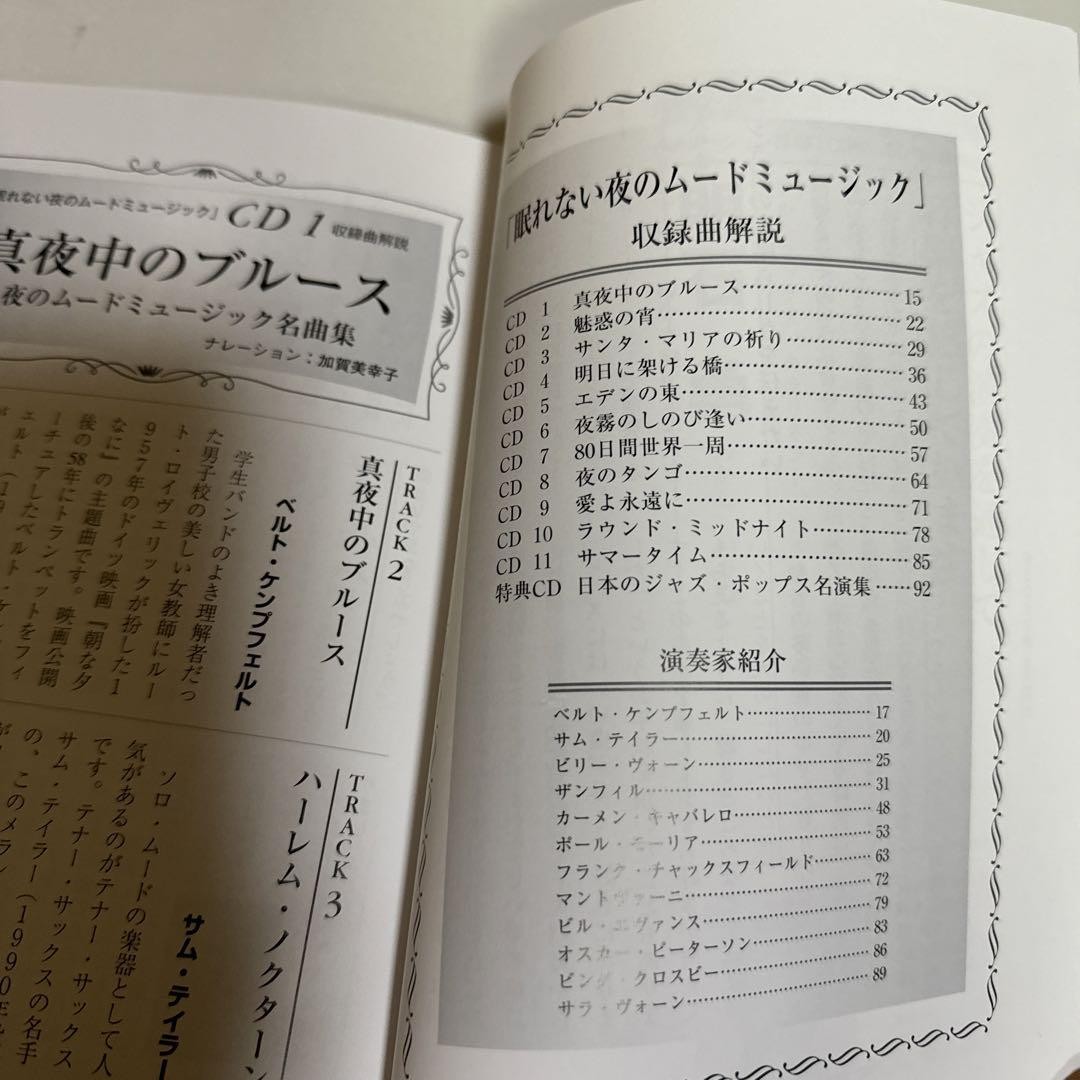 眠れない夜のムードミュージック」 CD 1 収録曲解説
真夜中のブルース
夜のムードミュージック名曲集
ナレーション：加賀美幸子
TRACK 2
真夜中のブルース
ベルト・ケンプフェルト
学生バンドのよき理解者だっ
た男子校の美しい女教師にルー
ト・ロイヴェリックが扮した1
957年のドイツ映画『朝な夕
なに』の主題曲です。映画公開
後の58年にトランペットをフィ
ーチュアしたベルト・ケンプ
ェルト（19
TRACK 3
ハーレム・ノクターン
サム・テイラー
ソロ・ムードの楽器として人
気があるのがテナー・サックス
です。テナー・サックスの名手
サム・テイラー（1990年
の、このメラン
「眠れない夜のムードミュージック」
収録曲解説
CD 1 真夜中のブルース…………………… 15
CD 2 魅惑の宵…………………… 22
CD 3 サンタ・マリアの祈り…………………… 29
CD 4 明日に架ける橋…………………… 36
CD 5 エデンの東…………………… 43
CD 6 夜霧のしのび逢い…………………… 50
CD 7 80日間世界一周…………………… 57
CD 8 夜のタンゴ…………………… 64
CD 9 愛よ永遠に…………………… 71
CD 10 ラウンド・ミッドナイト…………………… 78
CD 11 サマータイム…………………… 85
特典CD 日本のジャズ・ポップス名演集……92
演奏家紹介
ベルト・ケンプフェルト…………………… 17
サム・テイラー…………………… 20
ビリー・ヴォーン…………………… 25
ザンフィル…………………… 31
カーメン・キャバレロ…………………… 48
ポール・モーリア…………………… 53
フランク・チャックスフィールド…………………… 63
マントヴァーニ…………………… 72
ビル・エヴァンス…………………… 79
オスカー・ピーターソン…………………… 83
ビング・クロスビー…………………… 86
サラ・ヴォーン…………………… 89